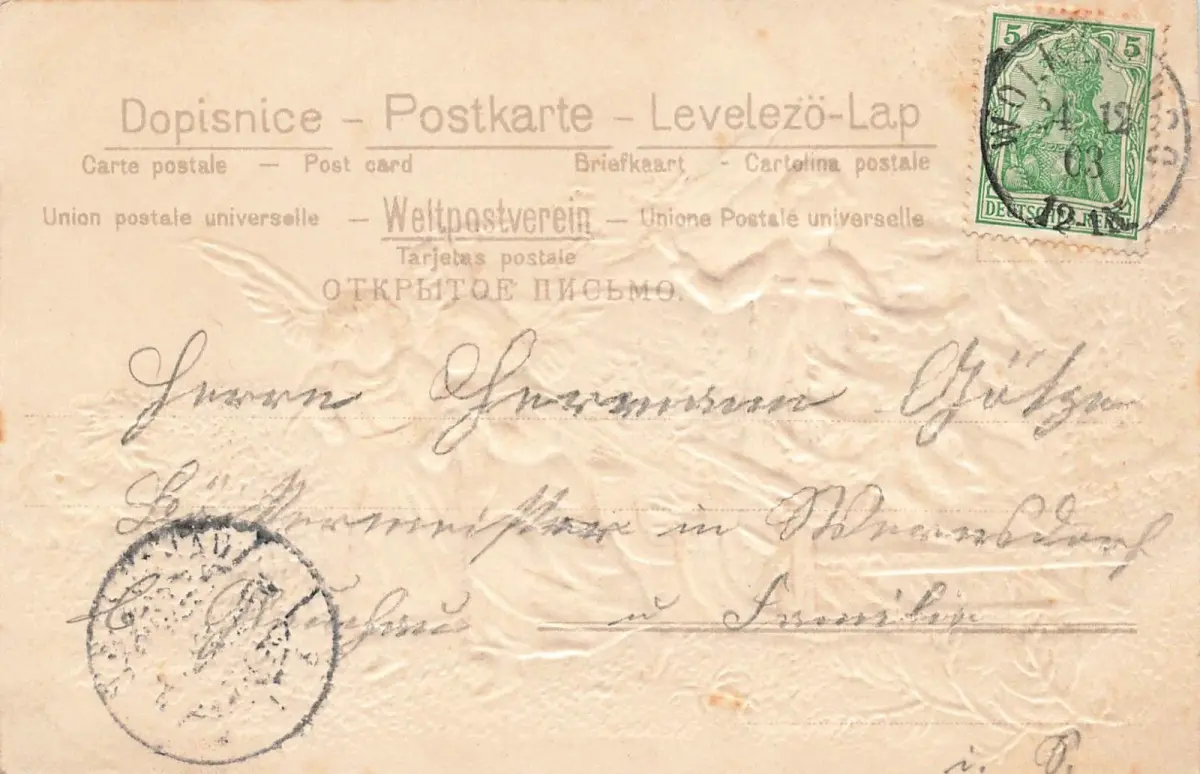 5 5
Dopisnice – Postkarte – Levelezö-Lap
Carte postale – Post card Briefkaart – Cartolina postale
Union postale universelle – Weltpostverein – Unione Postale universelle
Tarjetas postale
ОТКРЫТОЕ ПИСЬМО.
12
03
DEUTSCHES REICH
Herrn Hermann Götze
Bäckermeister in Wernsdorf
b. Glauchau u Familie
i. S.